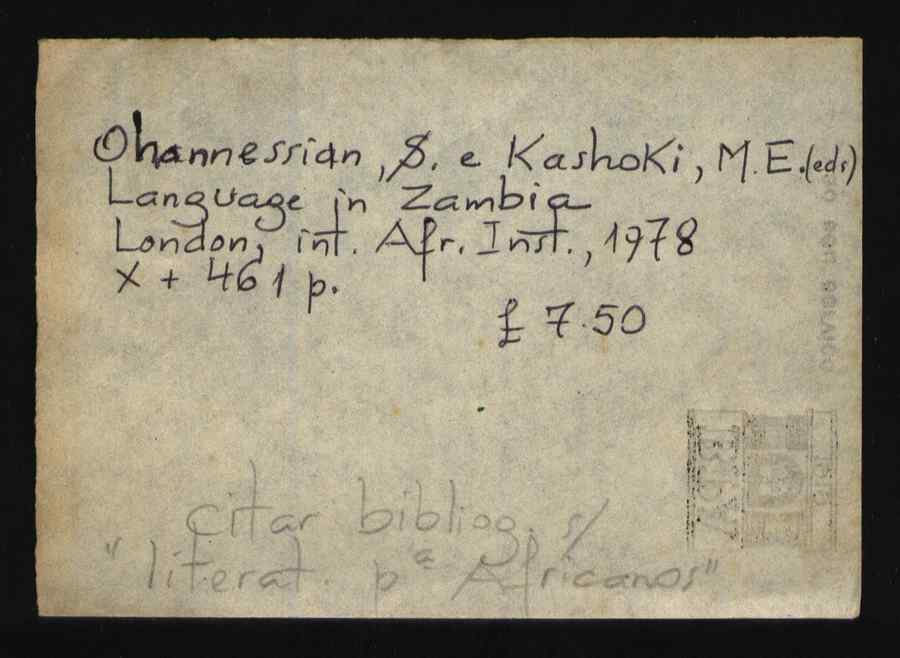 Ohannessian, S. e Kashoki, M.E.(eds)
Language in Zambia
London, int. Afr. Inst., 1978
X + 461 p.
£ 7.50
citar bibliog. s/
"literat. pª Africanos"